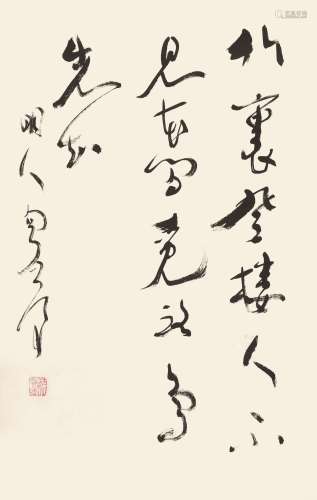 竹裏登樓人不
見花間覓路鳥
先知
明人